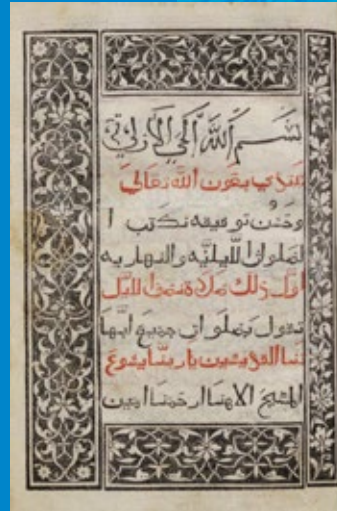 بسم الله الحي الازلي
نبتدي بعون الله تعالي
وحسن توفيقه نكتب ا
لصلوات الليليه والنهاريه
اول ذلك صلاة نصف الليل
تقول بصلوات جميع ابها
تنا القديسين ياربنا يشوع
المسيح الاهنا ارحمنا امين